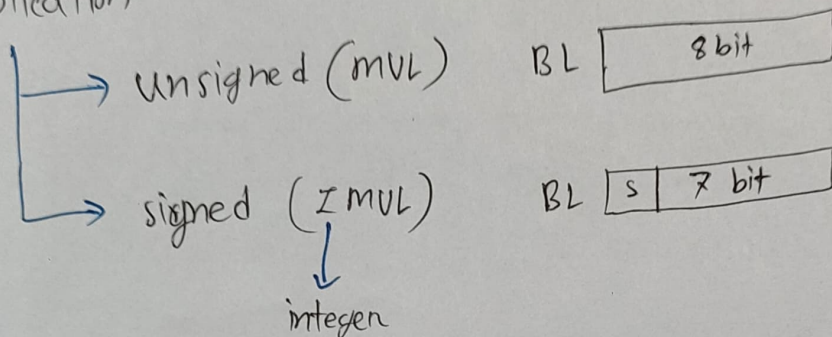 unsigned (MUL) BL 8 bit
signed (IMUL) BL S 7 bit
integer